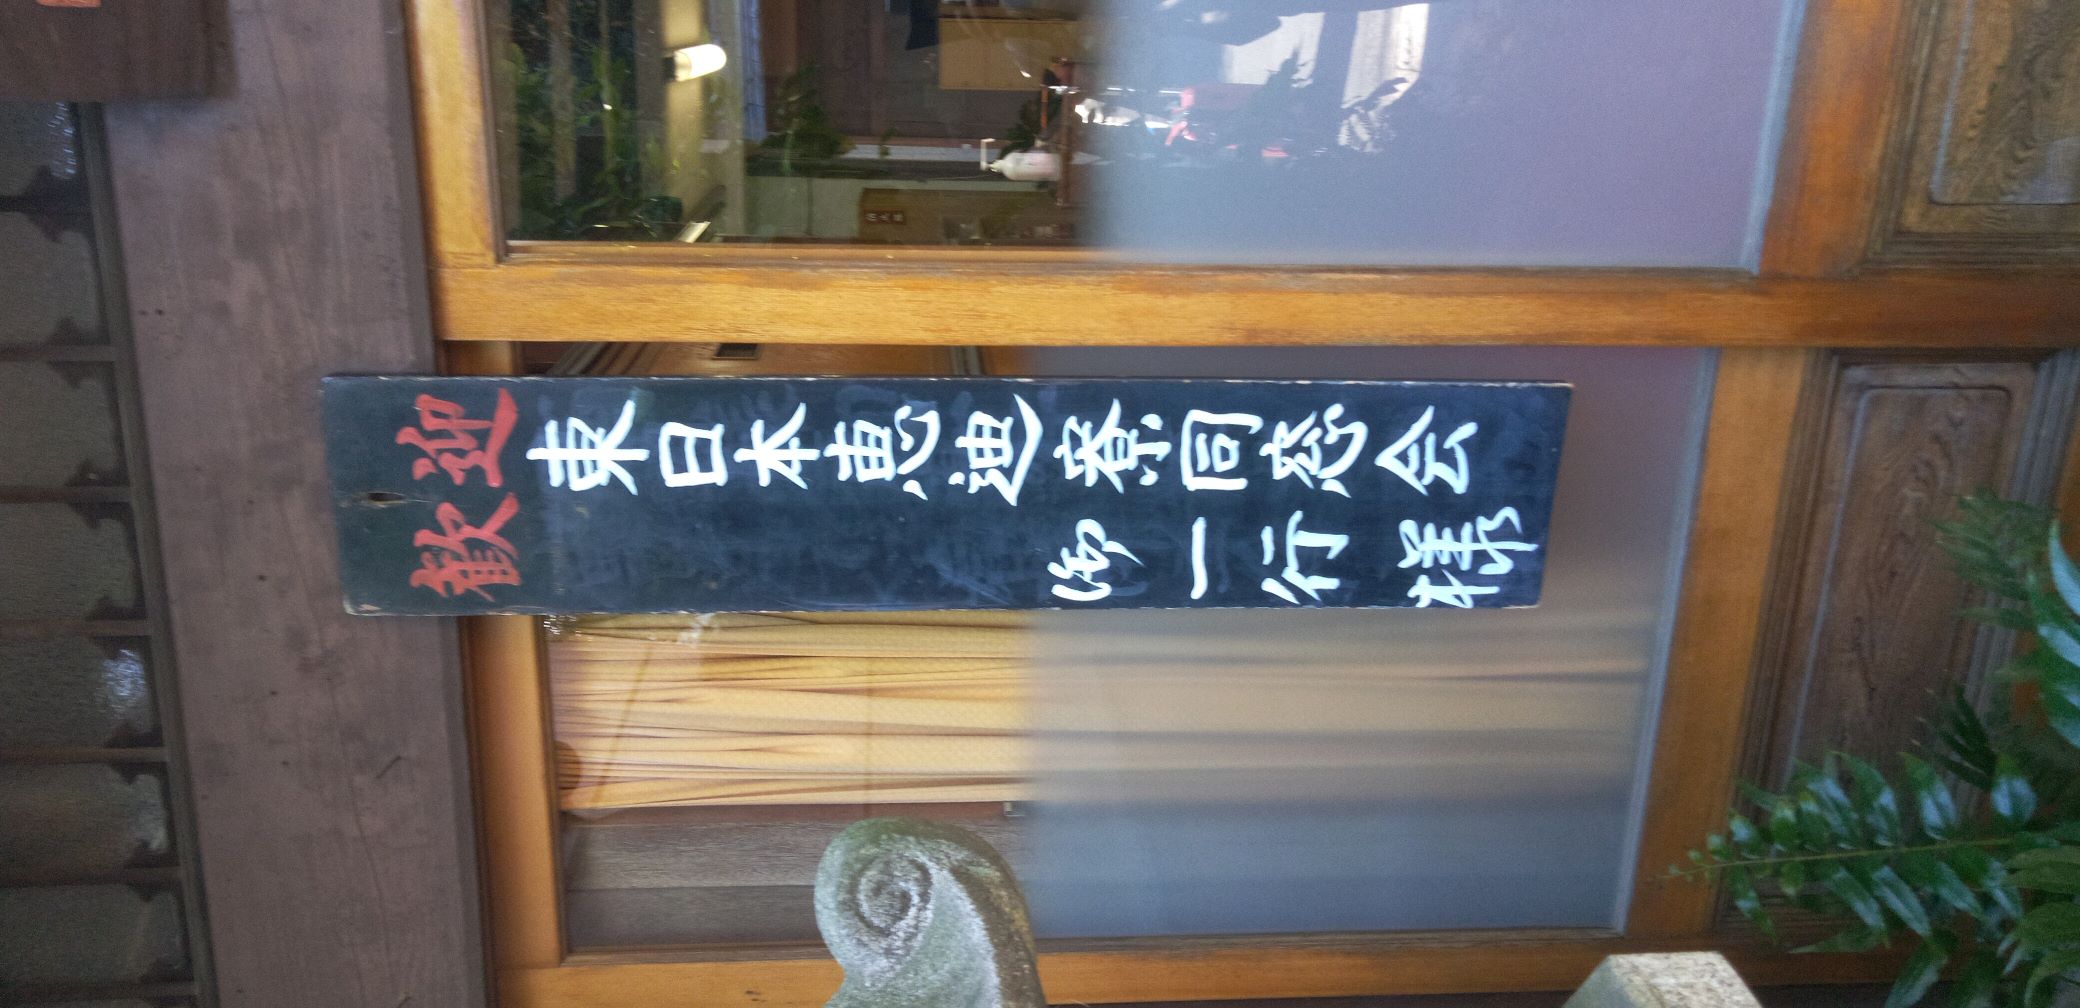 歓迎
東日本恵迪寮同窓会
御一行様